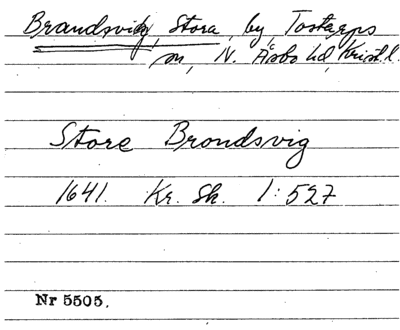 Brandsvig, Stora, by, Tostarps
sn, N. Åsbo hd, Krist. l.
Store Brondsvig
1641. Kr. Sk. 1:527
Nr 5505.